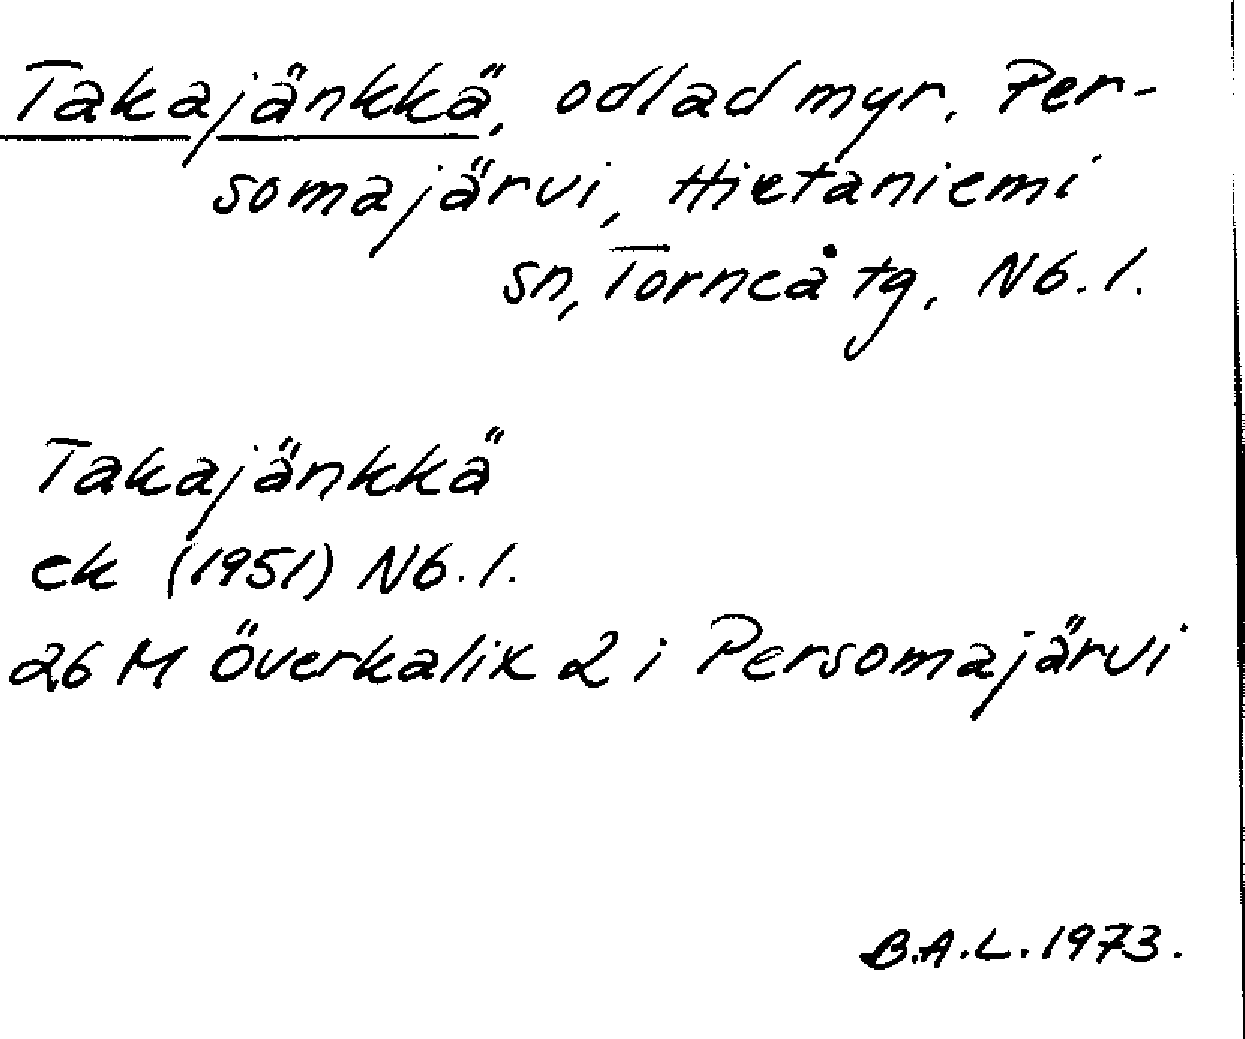 Takajänkkä, odlad myr, Per-
somajärvi, Hietaniemi
sn, Torneå tg, Nb. l.
Takajänkkä
ek (1951) Nb. l.
26 M Överkalix 2 i Persomajärvi
B.A.L. 1973.